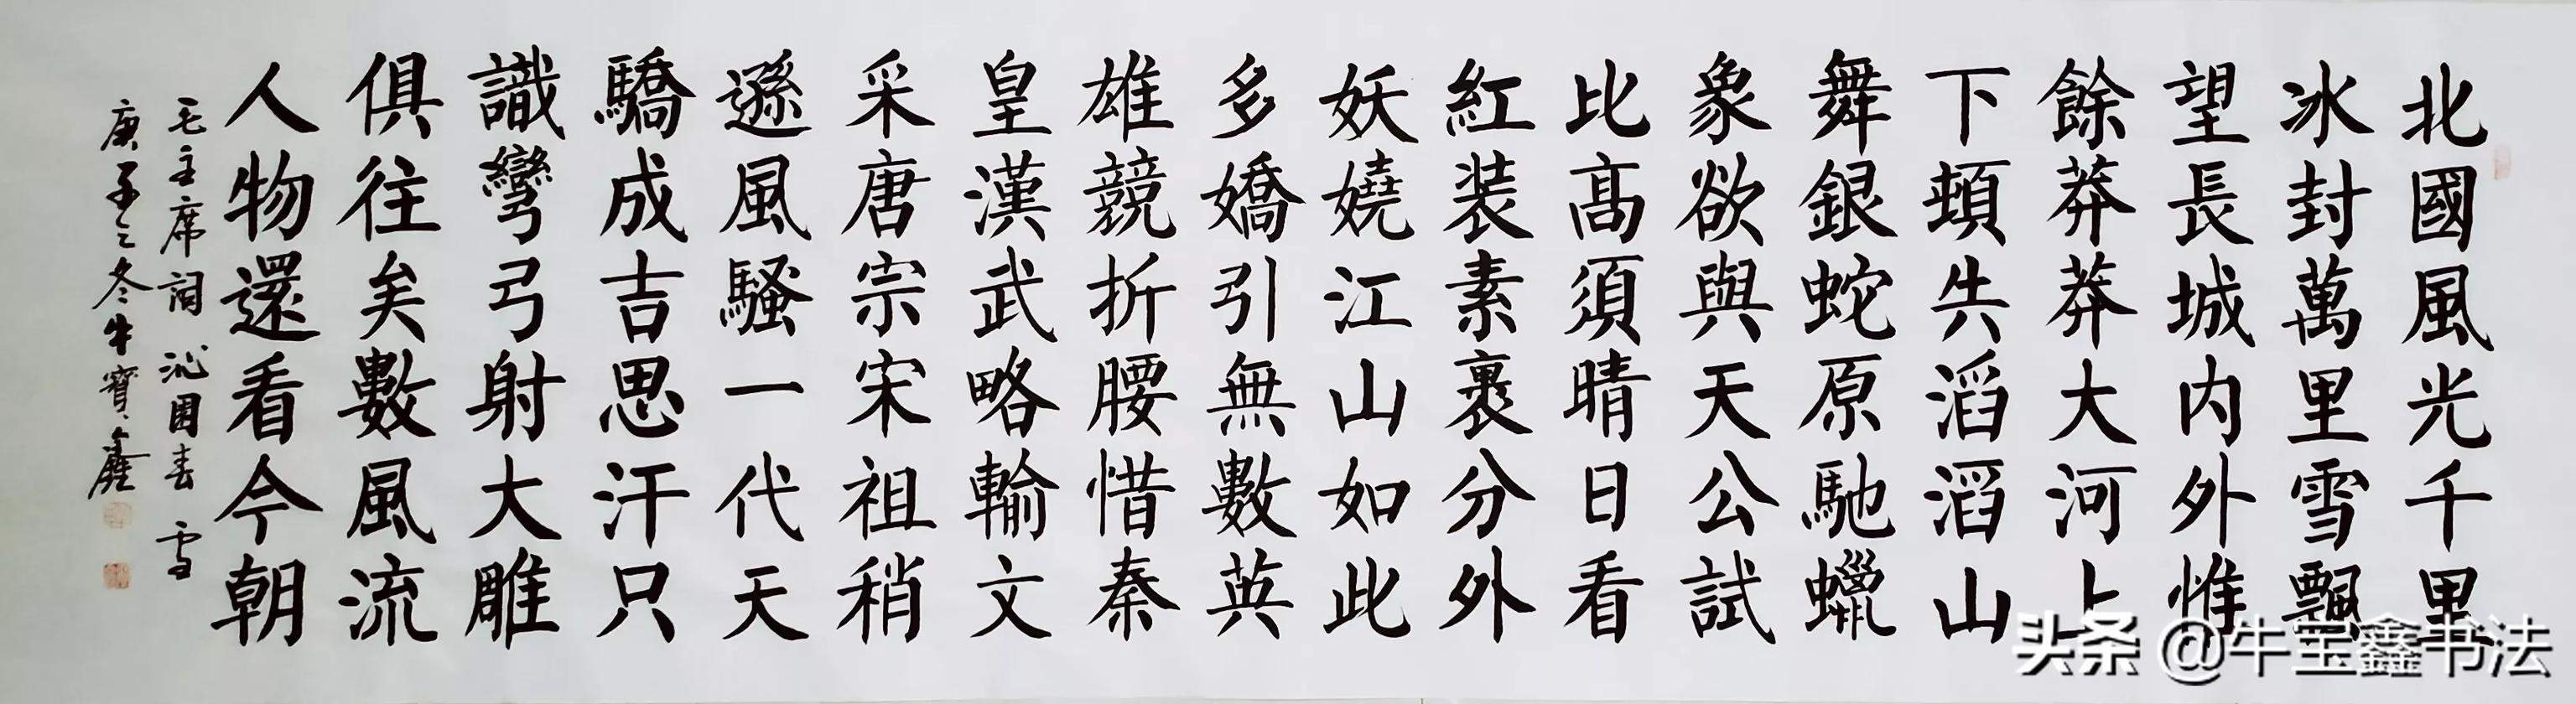 北國風光千里
冰封萬里雪飄
望長城内外惟
餘莽莽大河上
下頓失滔滔山
舞銀蛇原馳蠟
象欲與天公試
比髙須晴日看
紅装素裹分外
妖嬈江山如此
多嬌引無數英
雄競折腰惜秦
皇漢武略輸文
采唐宗宋祖稍
遜風騷一代天
驕成吉思汗只
識彎弓射大雕
俱往矣數風流
人物還看今朝
毛主席詞沁園春 雪
庚子之冬牛寶鑫
头条 @牛宝鑫书法